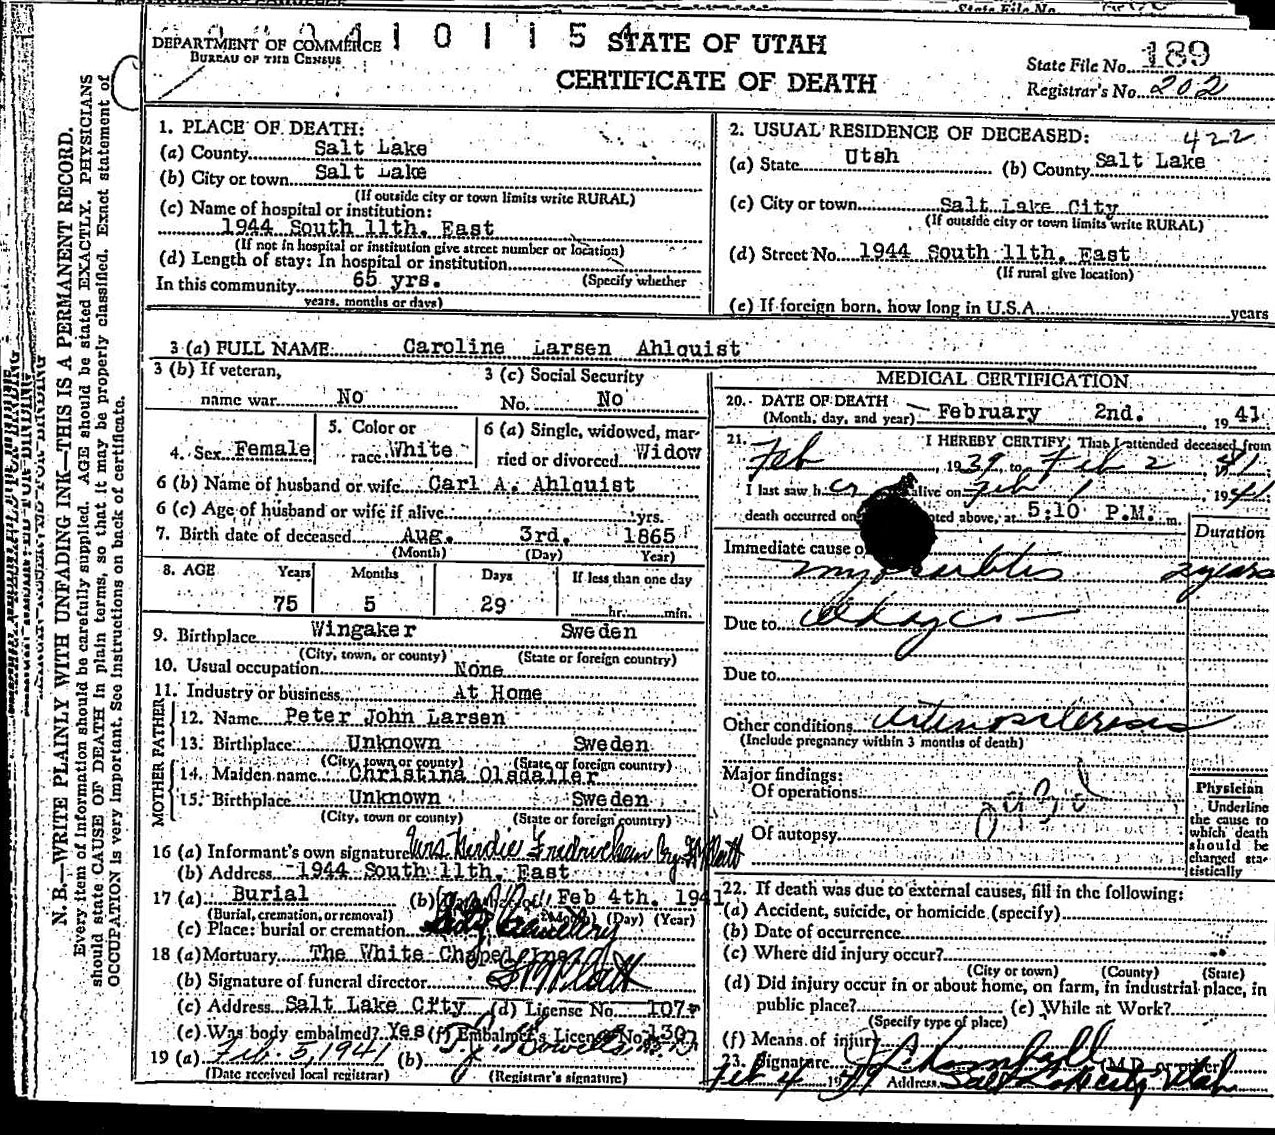 State File No.
DEPARTMENT OF COMMERCE
BUREAU OF THE CENSUS
4 1 0 1 1 5 4
STATE OF UTAH
CERTIFICATE OF DEATH
State File No. 189
Registrar's No. 202
N. B.—WRITE PLAINLY WITH UNFADING INK—THIS IS A PERMANENT RECORD.
Every item of information should be carefully supplied. AGE should be stated EXACTLY. PHYSICIANS
should state CAUSE OF DEATH in plain terms, so that it may be properly classified. Exact statement of
OCCUPATION is very important. See instructions on back of certificate.
1. PLACE OF DEATH:
(a) County Salt Lake
(b) City or town Salt Lake
(If outside city or town limits write RURAL)
(c) Name of hospital or institution:
1944 South 11th. East
(If not in hospital or institution give street number or location)
(d) Length of stay: In hospital or institution
(Specify whether
In this community 65 yrs.
years, months or days)
2. USUAL RESIDENCE OF DECEASED: 422
(a) State Utah (b) County Salt Lake
(c) City or town Salt Lake City
(If outside city or town limits write RURAL)
(d) Street No. 1944 South 11th. East
(If rural give location)
(e) If foreign born, how long in U.S.A. years
3 (a) FULL NAME: Caroline Larsen Ahlquist
3 (b) If veteran,
name war No
3 (c) Social Security
No. No
4. Sex Female
5. Color or
race White
6 (a) Single, widowed, mar-
ried or divorced Widow
6 (b) Name of husband or wife Carl A. Ahlquist
6 (c) Age of husband or wife if alive yrs.
7. Birth date of deceased Aug. 3rd. 1865
(Month) (Day) Year)
8. AGE Years Months Days If less than one day
75 5 29 hr. min.
9. Birthplace Wingaker Sweden
(City, town, or county) (State or foreign country)
10. Usual occupation None
11. Industry or business At Home
FATHER
12. Name Peter John Larsen
13. Birthplace Unknown Sweden
(City, town or county) (State or foreign country)
MOTHER
14. Maiden name Christina Olsdatter
15. Birthplace Unknown Sweden
(City, town or county) (State or foreign country)
16 (a) Informant's own signature Mrs
(b) Address 1944 South 11th. East
17 (a) Burial (b) Feb 4th. 1941
(Burial, cremation, or removal) (Month) (Day) (Year)
(c) Place: burial or cremation City Cemetery
18 (a) Mortuary The White Chapel Inc
(b) Signature of funeral director
(c) Address Salt Lake City (d) License No. 107
(e) Was body embalmed? Yes (f) Embalmer's License No. 130
19 (a) Feb. 5, 1941 (b)
(Date received local registrar) (Registrar's signature)
MEDICAL CERTIFICATION
20. DATE OF DEATH
(Month, day, and year) February 2nd. , 1941
21. I HEREBY CERTIFY, That I attended deceased from
Feb , 1939, to Feb 2 , 41,
I last saw h er alive on Feb 1 , 1941
death occurred on ted above, at 5:10 P.M. m.
Duration
Immediate cause o
myocarditis 2 years
Due to old age
Due to
Other conditions arteriosclerosis
(Include pregnancy within 3 months of death)
Major findings:
Of operations
Of autopsy
Physician
Underline
the cause to
which death
should be
charged sta-
tistically
22. If death was due to external causes, fill in the following:
(a) Accident, suicide, or homicide (specify)
(b) Date of occurrence
(c) Where did injury occur?
(City or town) (County) (State)
(d) Did injury occur in or about home, on farm, in industrial place, in
public place? (e) While at Work?
(Specify type of place)
(f) Means of injury
23. Signature Kimball (M.D. or other)
Feb 4 1941 Address Salt Lake City Utah